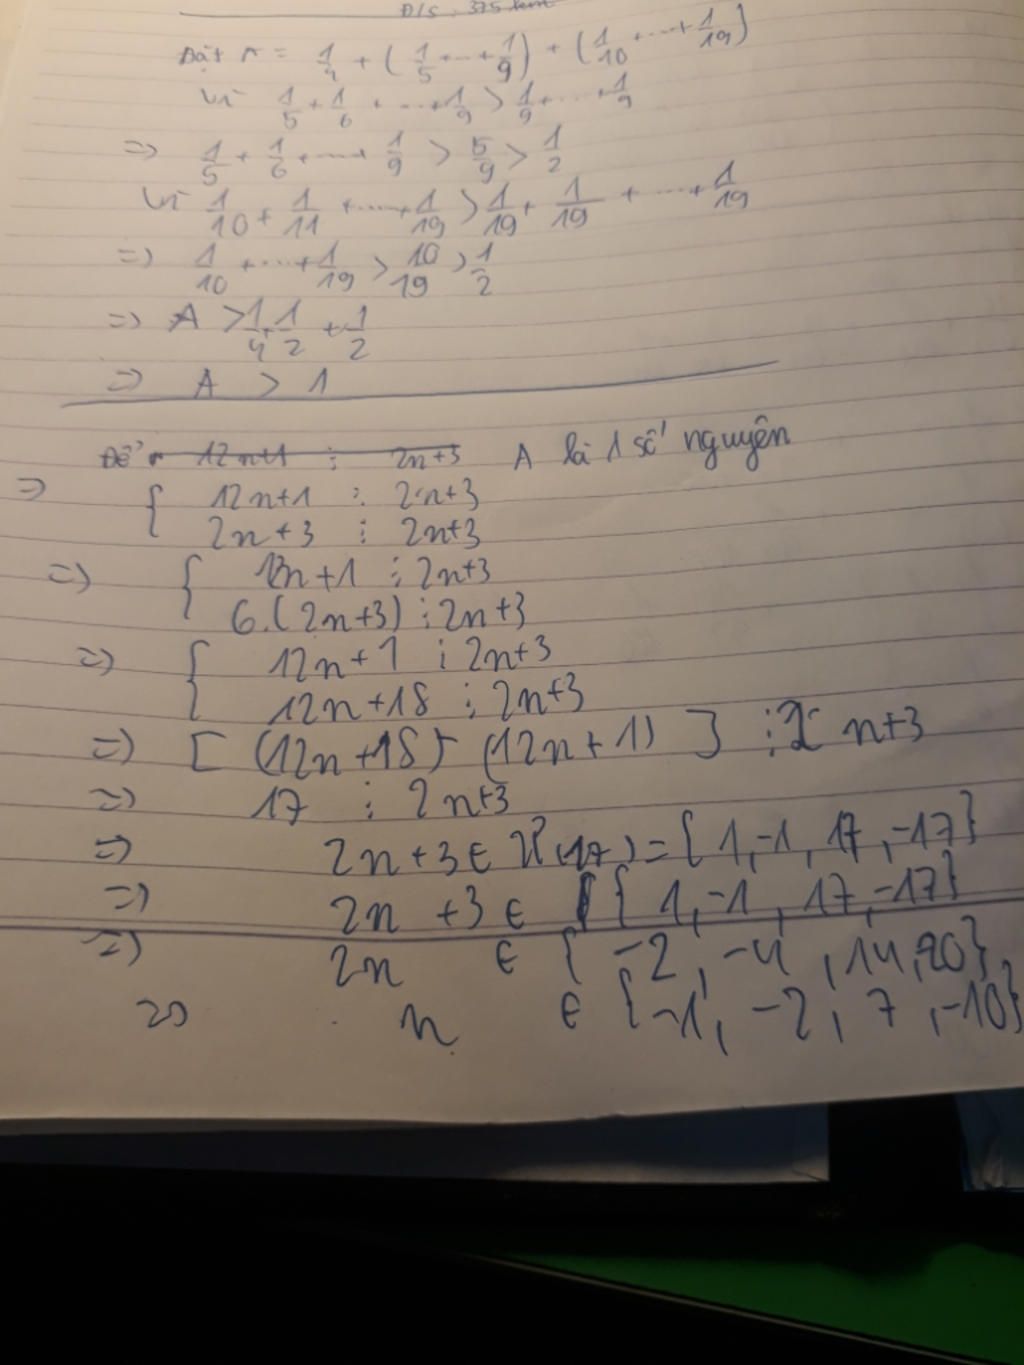 Đ/S : 375 kem
Đặt A = 1/4 + ( 1/5 + ... + 1/9 ) + ( 1/10 + ... + 1/19 )
Vì 1/5 + 1/6 + ... + 1/9 > 1/9 + ... + 1/9
=> 1/5 + 1/6 + ... + 1/9 > 5/9 > 1/2
Vì 1/10 + 1/11 + ... + 1/19 > 1/19 + 1/19 + ... + 1/19
=> 1/10 + ... + 1/19 > 10/19 > 1/2
=> A > 1/4 + 1/2 + 1/2
=> A > 1
Để 12n+1 ⋮ 2n+3 A là 1 số nguyên
=> { 12n+1 ⋮ 2n+3
2n+3 ⋮ 2n+3
=> { 12n+1 ⋮ 2n+3
6.(2n+3) ⋮ 2n+3
=> { 12n+1 ⋮ 2n+3
12n+18 ⋮ 2n+3
=> [ (12n+18) - (12n+1) ] ⋮ 2n+3
=> 17 ⋮ 2n+3
=> 2n+3 ∈ Ư(17) = {1,-1, 17,-17}
=> 2n+3 ∈ { 1,-1, 17,-17}
=> 2n ∈ { -2, -4, 14, 20}
=> n ∈ {-1, -2, 7, -10}